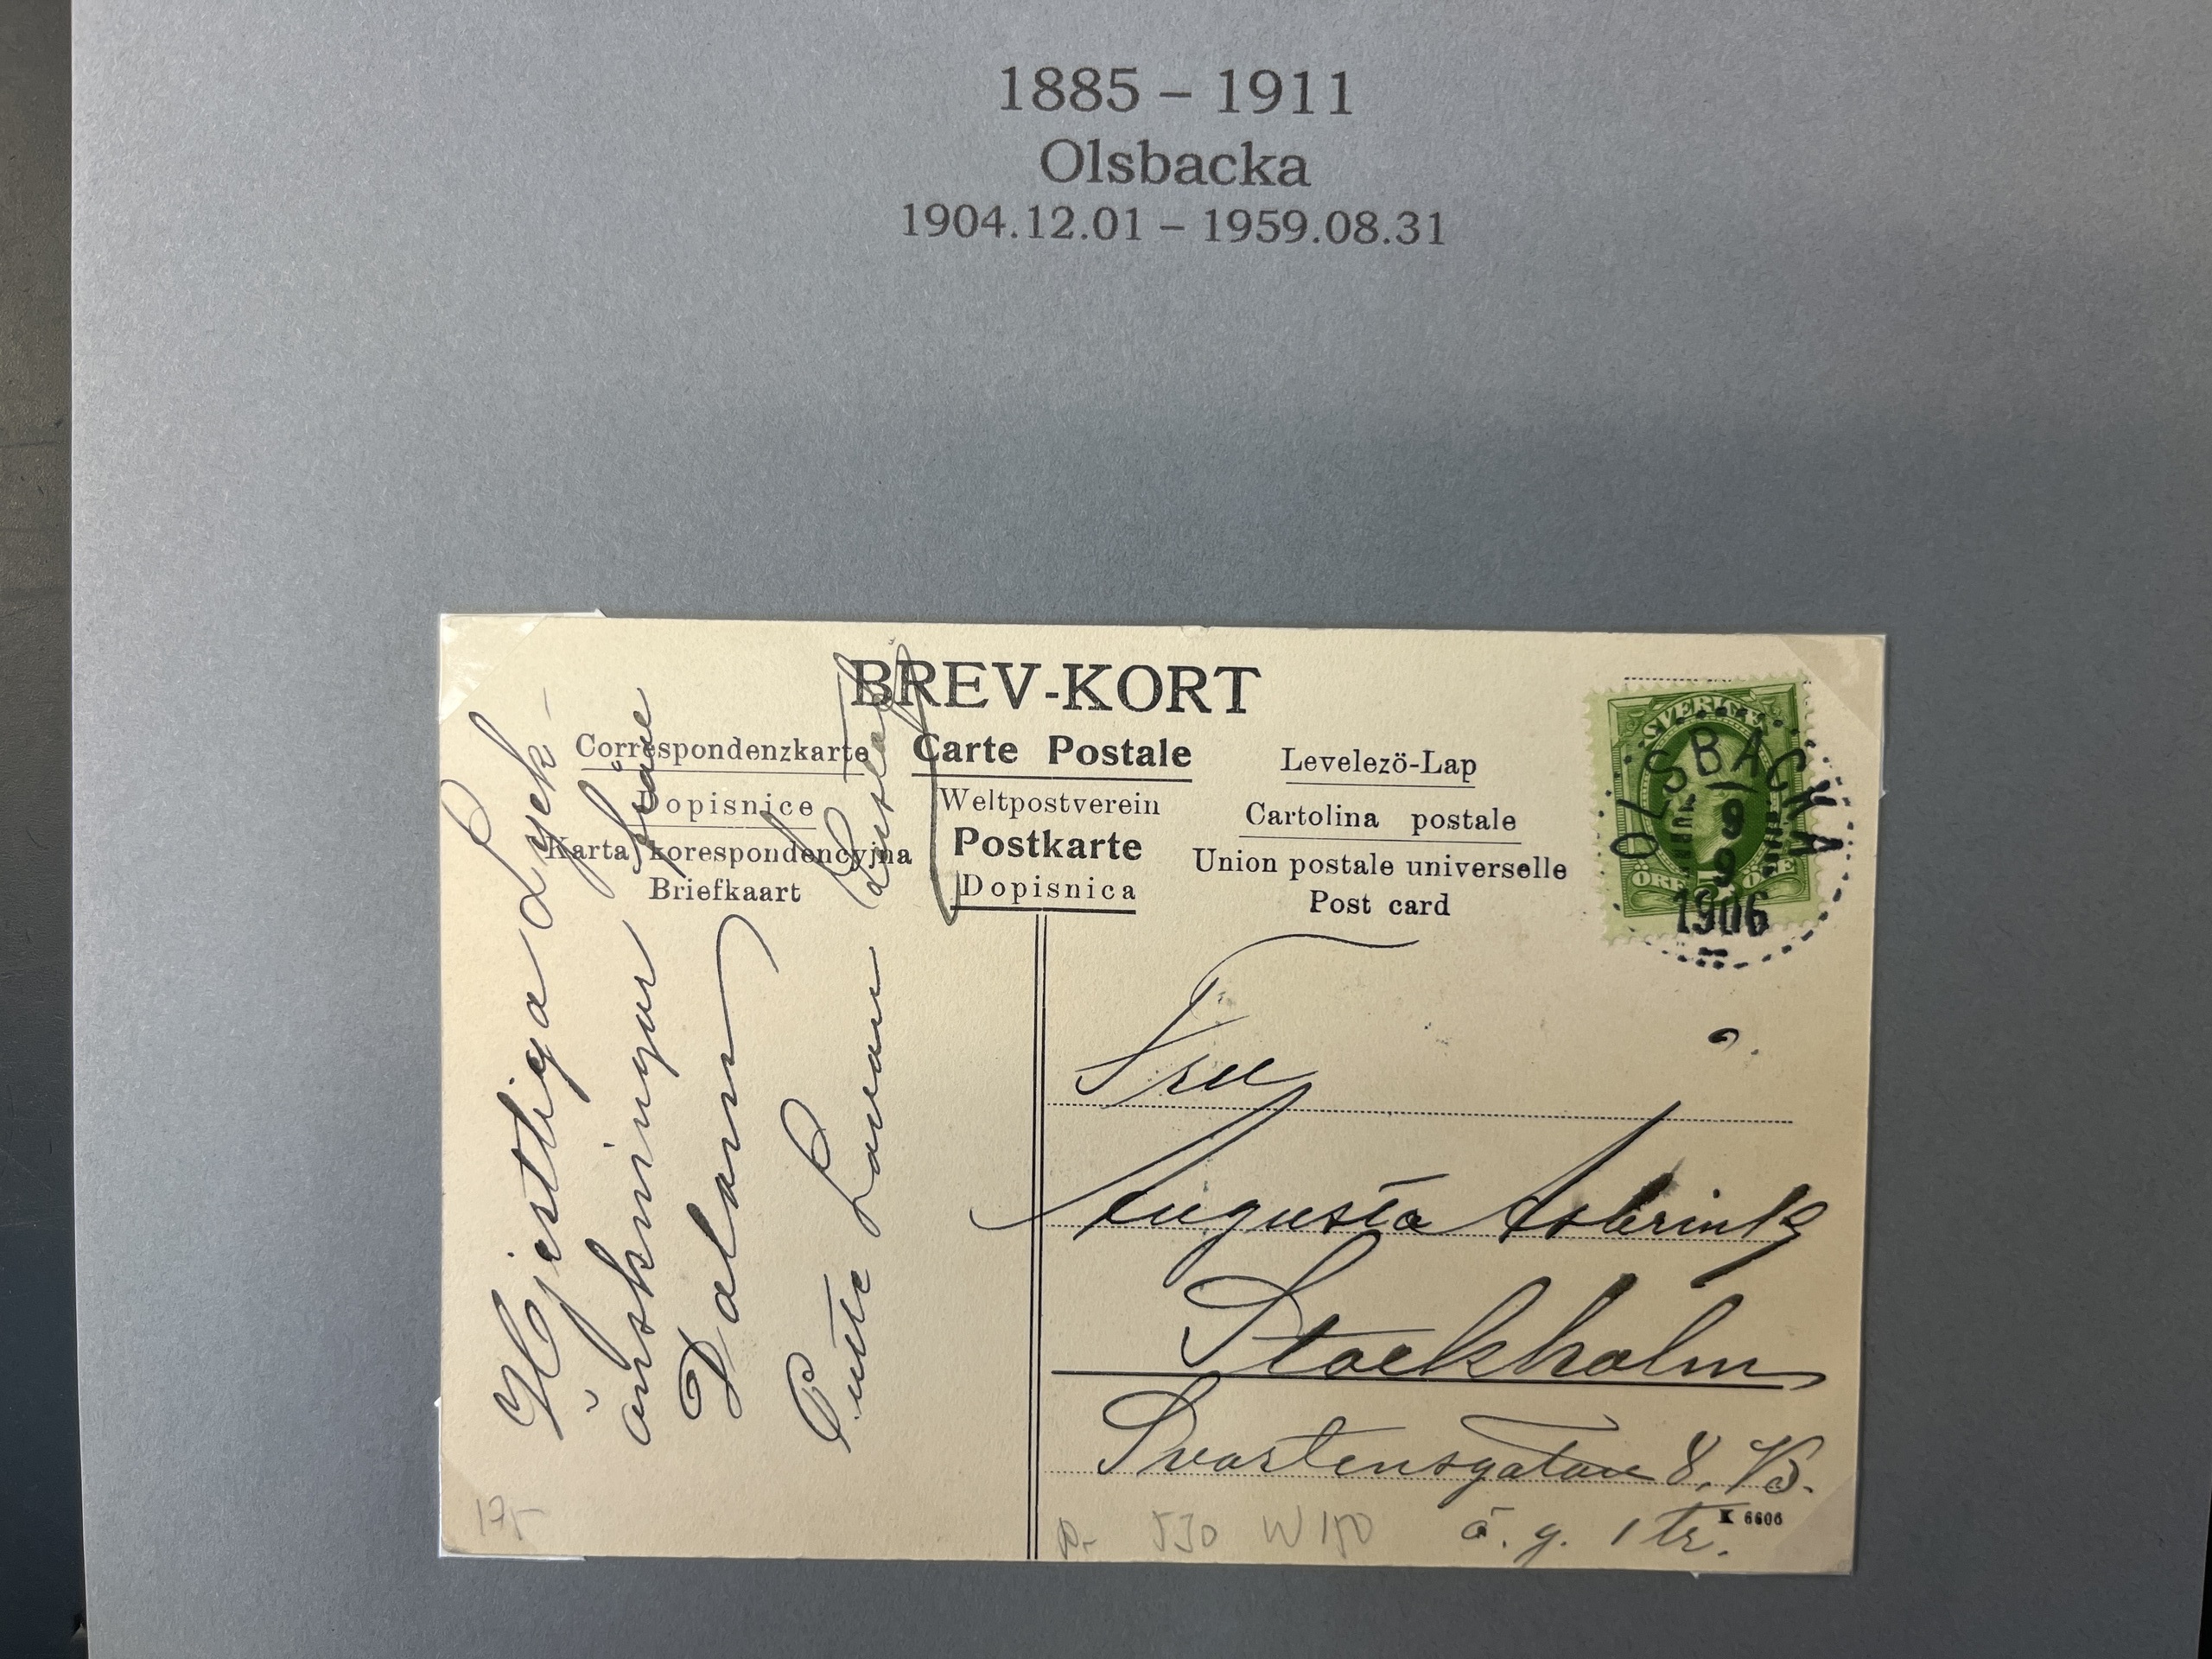 1885 – 1911
Olsbacka
1904.12.01 – 1959.08.31
BREV-KORT
Correspondenzkarte
Dopisnice
Karta korespondencyjna
Briefkaart
Carte Postale
Weltpostverein
Postkarte
Dopisnica
Levelezö-Lap
Cartolina postale
Union postale universelle
Post card
SVERIGE
ÖRE ÖRE
OLSBACKA
9
9
1906
Hjertliga Lyck-
önskningar från
Dalarn
Putte
Fru
Augusta Asbrink
Stockholm
Svartensgatan 8. B.
ö. g. 1 tr.
K 6606
175
530 W150